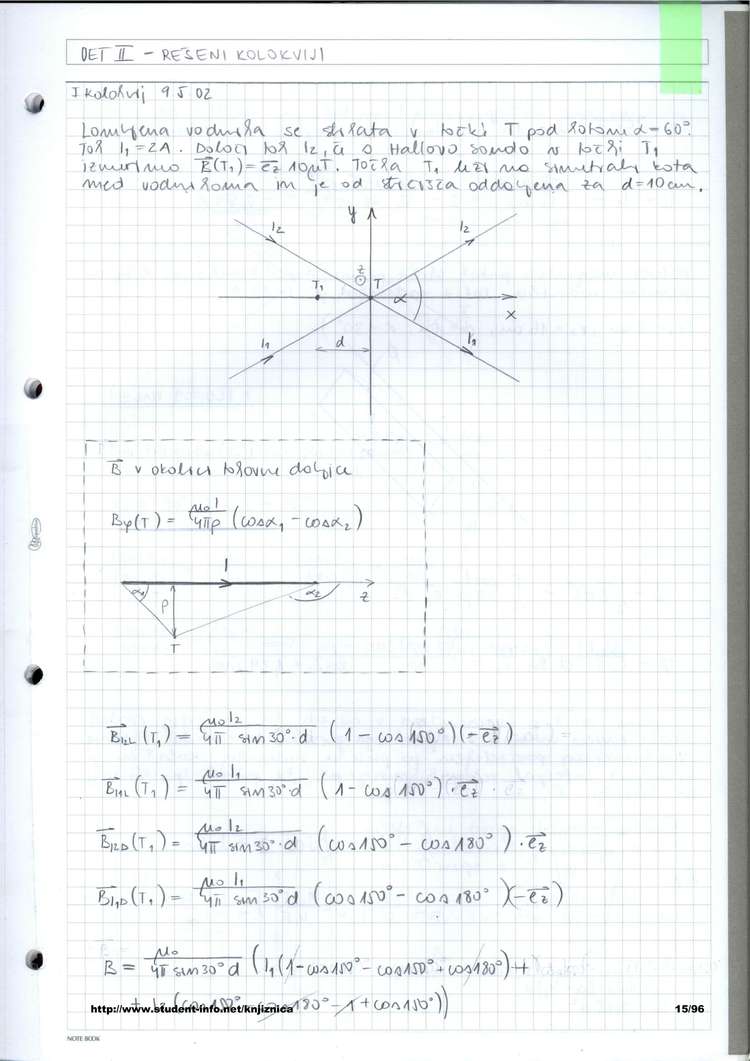 OET II - REŠENI KOLOKVIJI
I kolokvij 9 5 02
Lomljena vodnika se stikata v točki T pod kotom α=60°.
Tok I₁=2A. Določi tok I₂, če s Hallovo sondo v točki T₁
izmerimo B⃗(T₁)=e⃗z 10μT. Točka T₁ leži na simetrali kota
med vodnikoma in je od stičišča oddaljena za d=10cm.
y
I₂ I₂
z
T₁ T α
x
I₁ d I₁
B⃗ v okolici tokovne daljice
Bφ(T) = μ₀I/4πρ (cosα₁ - cosα₂)
I
α₁ ρ α₂ z
T
B⃗I2L (T₁) = μ₀I₂/4π sin30°·d (1 - cos(150°)(-e⃗z)
B⃗I1L (T₁) = μ₀I₁/4π sin30°·d (1 - cos(150°)·e⃗z
B⃗I2D (T₁) = μ₀I₂/4π sin30°·d (cos150° - cos180°)·e⃗z
B⃗I1D (T₁) = μ₀I₁/4π sin30°d (cos150° - cos180°)(-e⃗z)
B = μ₀/4π sin30°d (I₁(1-cos150° - cos150° + cos180°) +
+ I₂(cos150° - cos180° - 1 + cos150°))
http://www.student-info.net/knjiznica 15/96
NOTE BOOK